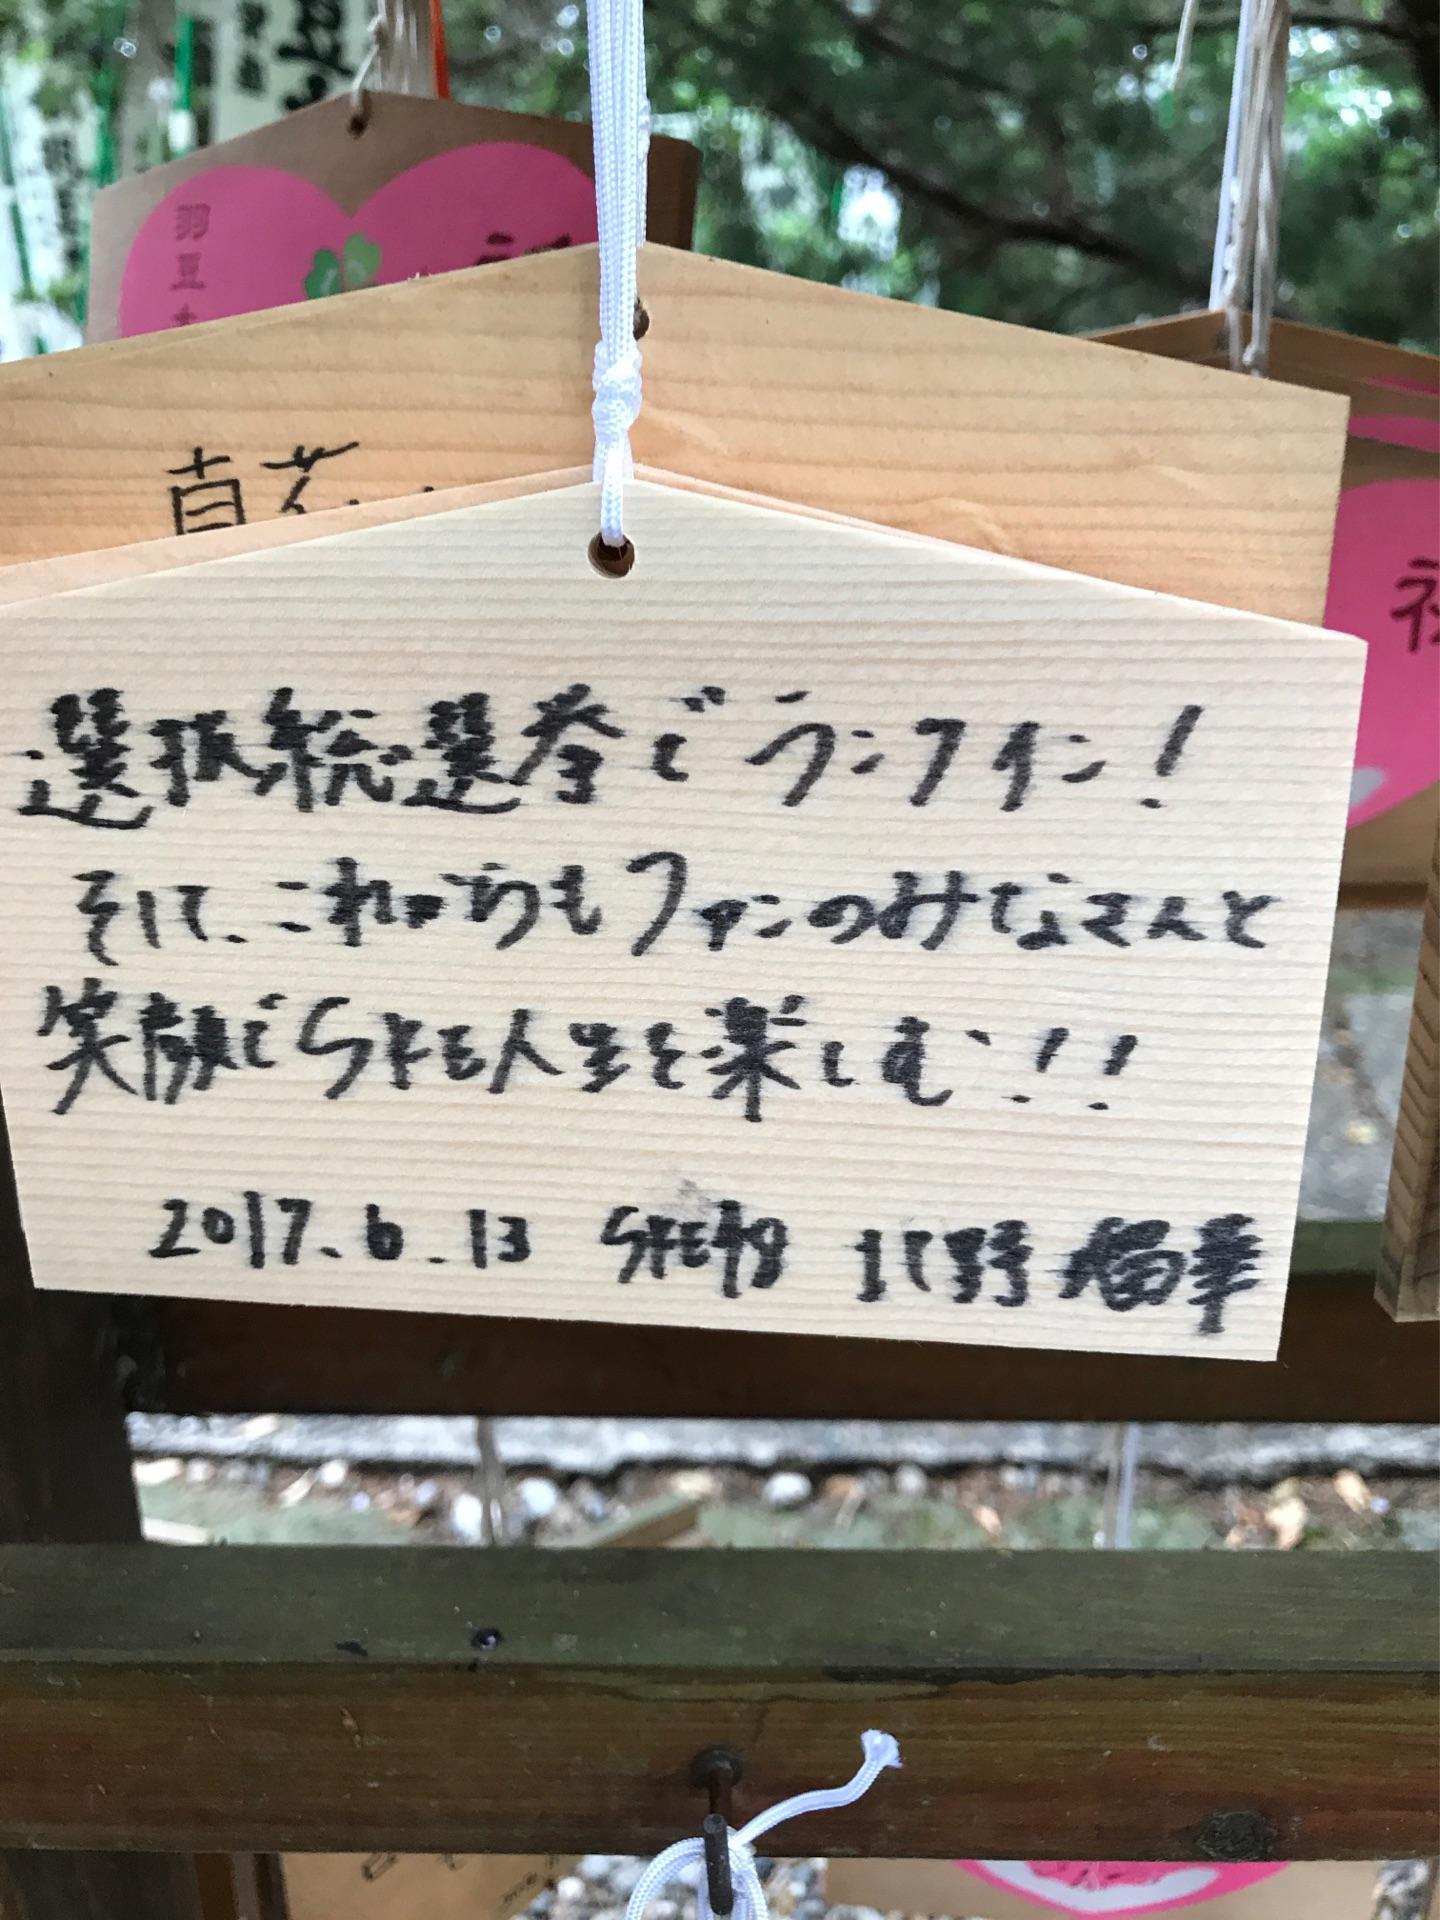 羽豆
社
選抜総選挙でランクイン！
そして、これからもファンのみなさんと
笑顔でSKE人生を楽しむ！！
2017.6.13 SKE48 北野瑠華